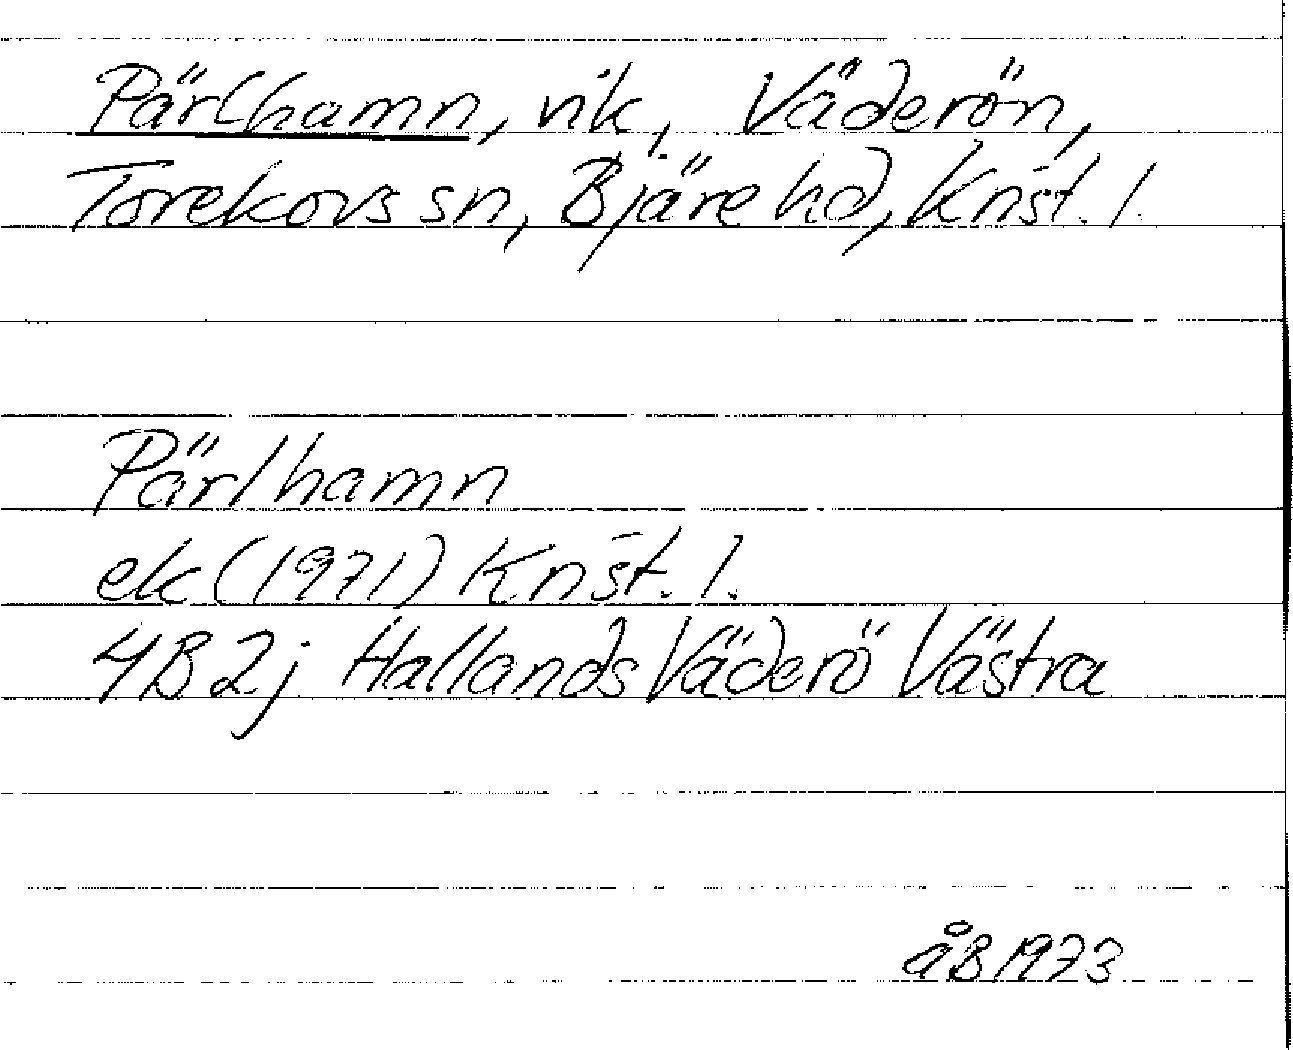 Pärlhamn, vik, Väderön,
Torekovs sn, Bjäre hd, Krist. l.
Pärlhamn
ek (1971) Krist. l.
4B2j Hallands Väderö Västra
åB 1973